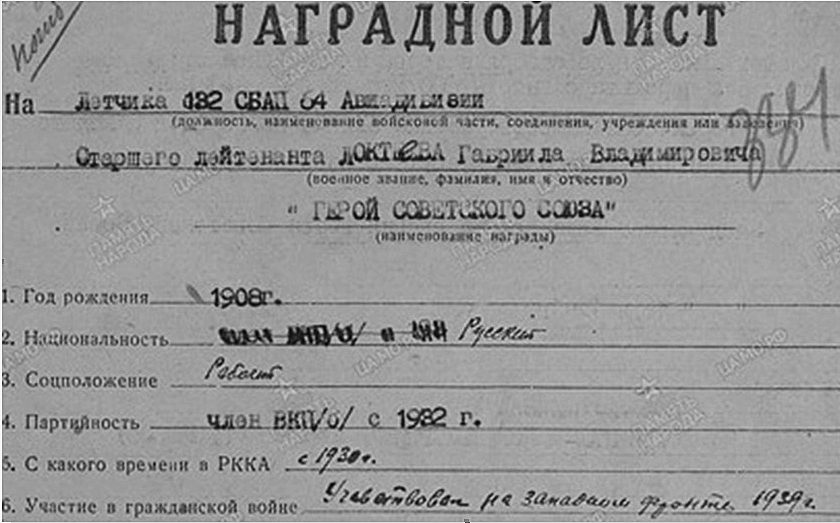 погиб
НАГРАДНОЙ ЛИСТ
На Летчика 132 СБАП 64 Авиадивизии
(должность, наименование войсковой части, соединения, учреждения или заведения)
Старшего лейтенанта ЛОКТЕВА Гавриила Владимировича
(военное звание, фамилия, имя и отчество)
"ГЕРОЙ СОВЕТСКОГО СОЮЗА"
(наименование награды)
1. Год рождения 1908г.
2. Национальность Русский
3. Соцположение Рабочий
4. Партийность член ВКП/б/ с 1932 г.
5. С какого времени в РККА с 1930 г.
6. Участие в гражданской войне Учавствовал на западном фронте 1939 г.
ПАМЯТЬ НАРОДА
ЦАМО.РФ